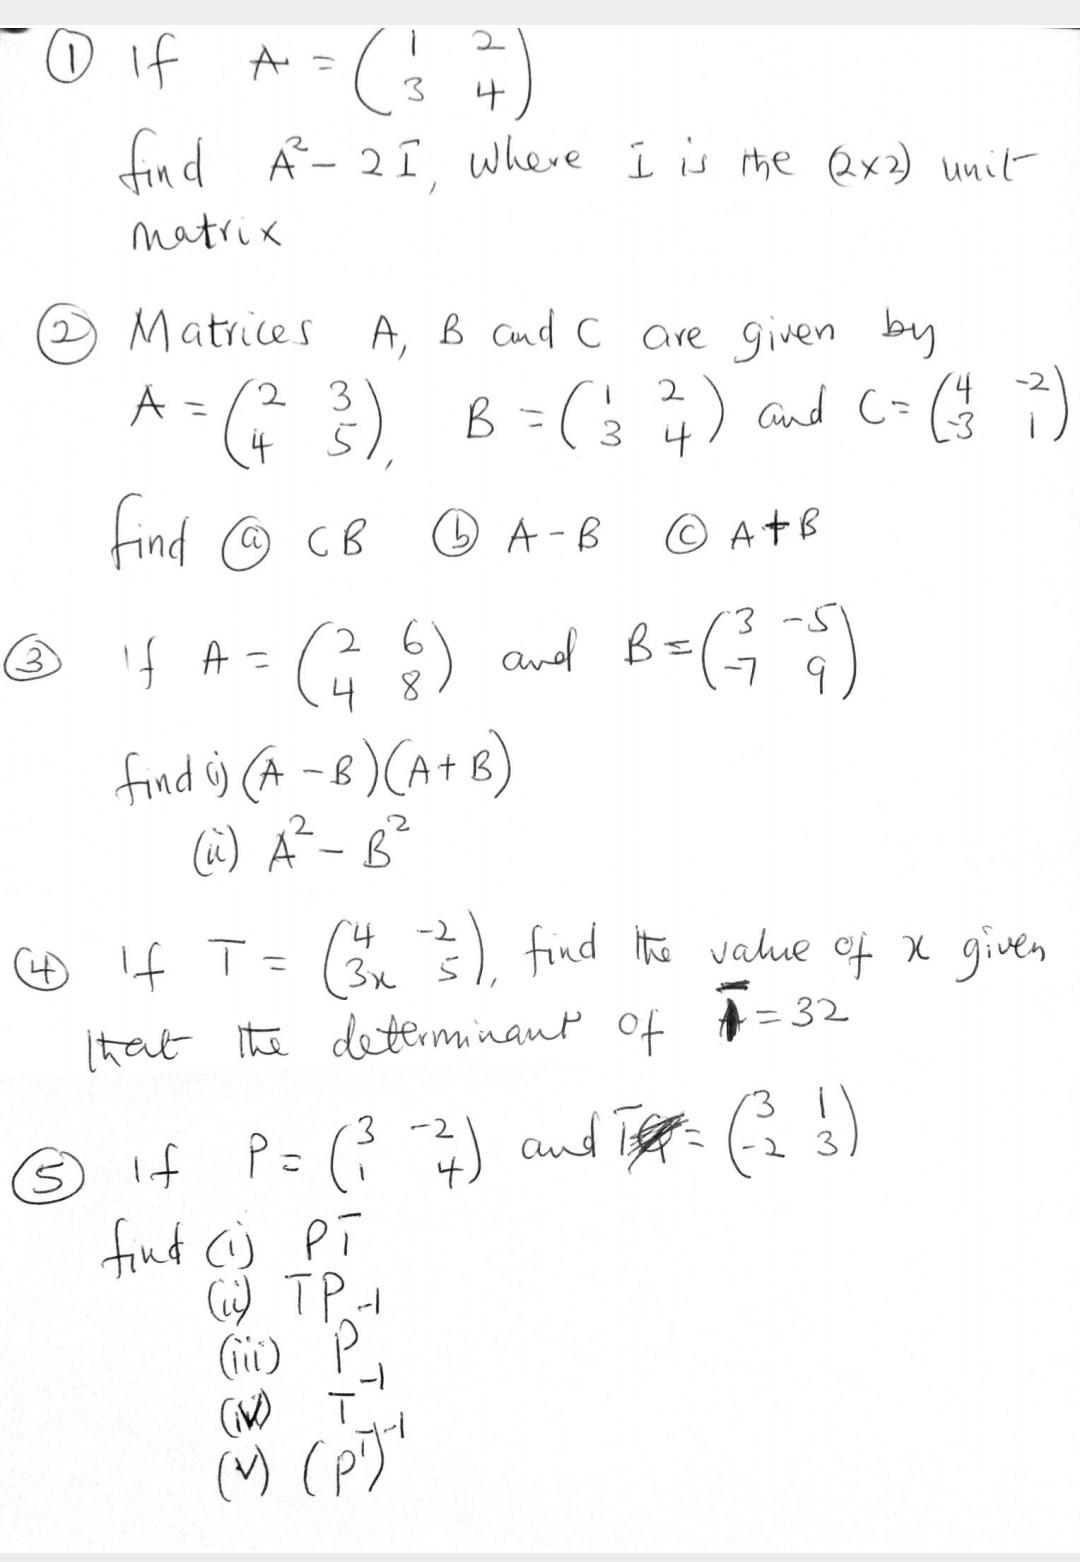 ① If A = (1 2
3 4)
find A² - 2I, where I is the (2x2) unit
matrix
② Matrices A, B and C are given by
A = (2 3
4 5), B = (1 2
3 4) and C = (4 -2
-3 1)
find ⓐ CB ⓑ A - B ⓒ A + B
③ If A = (2 6
4 8) and B = (3 -5
-7 9)
find (i) (A - B)(A + B)
(ii) A² - B²
④ If T = (4 -2
3x 5), find the value of x given
that the determinant of T = 32
⑤ If P = (3 -2
1 4) and T = (3 1
-2 3)
find (i) PT
(ii) TP
(iii) P⁻¹
(iv) T⁻¹
(v) (Pᵀ)⁻¹